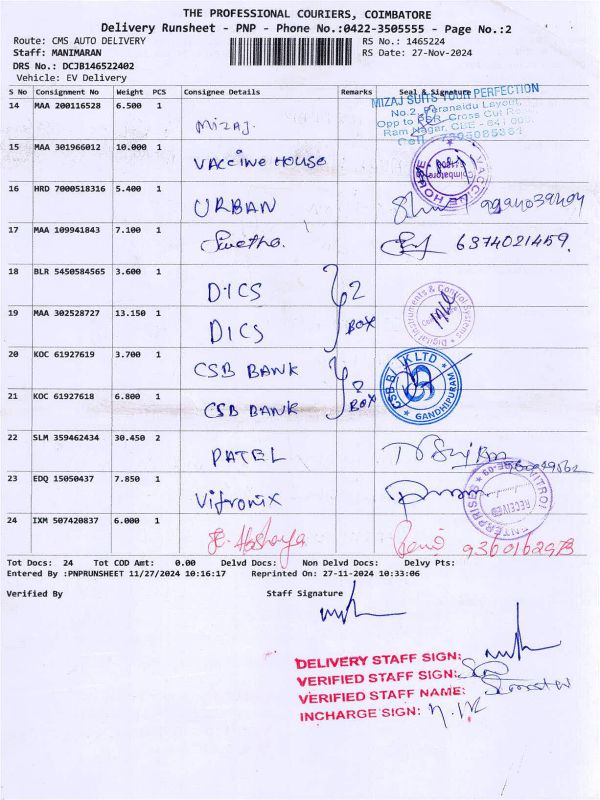 THE PROFESSIONAL COURIERS, COIMBATORE
Delivery Runsheet - PNP - Phone No.:0422-3505555 - Page No.:2
Route: CMS AUTO DELIVERY RS No.: 1465224
Staff: MANIMARAN RS Date: 27-Nov-2024
DRS No.: DCJB146522402
Vehicle: EV Delivery
S No Consignment No Weight PCS Consignee Details Remarks Seal & Signature
MIZAJ SUITS YOUR PERFECTION
14 MAA 200116528 6.500 1 Mizaj.
No.2, Peranaidu Layout,
Opp to GSR, Cross Cut Rd
Ram Nagar, CBE - 641 009.
Cell :
15 MAA 301966012 10.000 1 VACCINE HOUSE VACCINE HOUSE Coimbatore
16 HRD 7000518316 5.400 1 URBAN
17 MAA 109941843 7.100 1 Swetha. 6374021459.
18 BLR 5450584565 3.600 1 DICS 2
Digital Instruments & Control Systems
19 MAA 302528727 13.150 1 DICS BOX
20 KOC 61927619 3.700 1 CSB BANK 2
CSB BANK LTD GANDHIPURAM
21 KOC 61927618 6.800 1 CSB BANK BOX
22 SLM 359462434 30.450 2 PATEL
23 EDQ 15050437 7.850 1 Vitronix
ENTERPRISES RECEIVED
24 IXM 507420837 6.000 1
Tot Docs: 24 Tot COD Amt: 0.00 Delvd Docs: Non Delvd Docs: Delvy Pts:
Entered By :PNPRUNSHEET 11/27/2024 10:16:17 Reprinted On: 27-11-2024 10:33:06
Verified By Staff Signature
DELIVERY STAFF SIGN:
VERIFIED STAFF SIGN:
VERIFIED STAFF NAME:
INCHARGE SIGN: